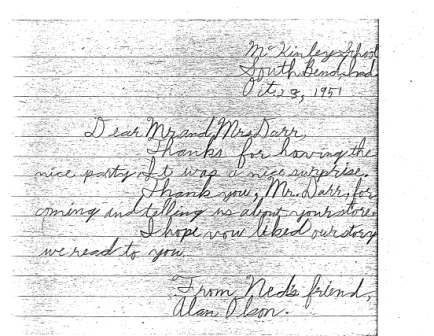 McKinley School
South Bend, Ind.
Oct. 23, 1951
Dear Mr. and Mrs. Darr,
Thanks for having the
nice party. It was a nice surprise.
Thank you, Mr. Darr, for
coming and telling us about your store.
I hope you liked our story
we read to you.
From Ned's friend,
Alan Olson.